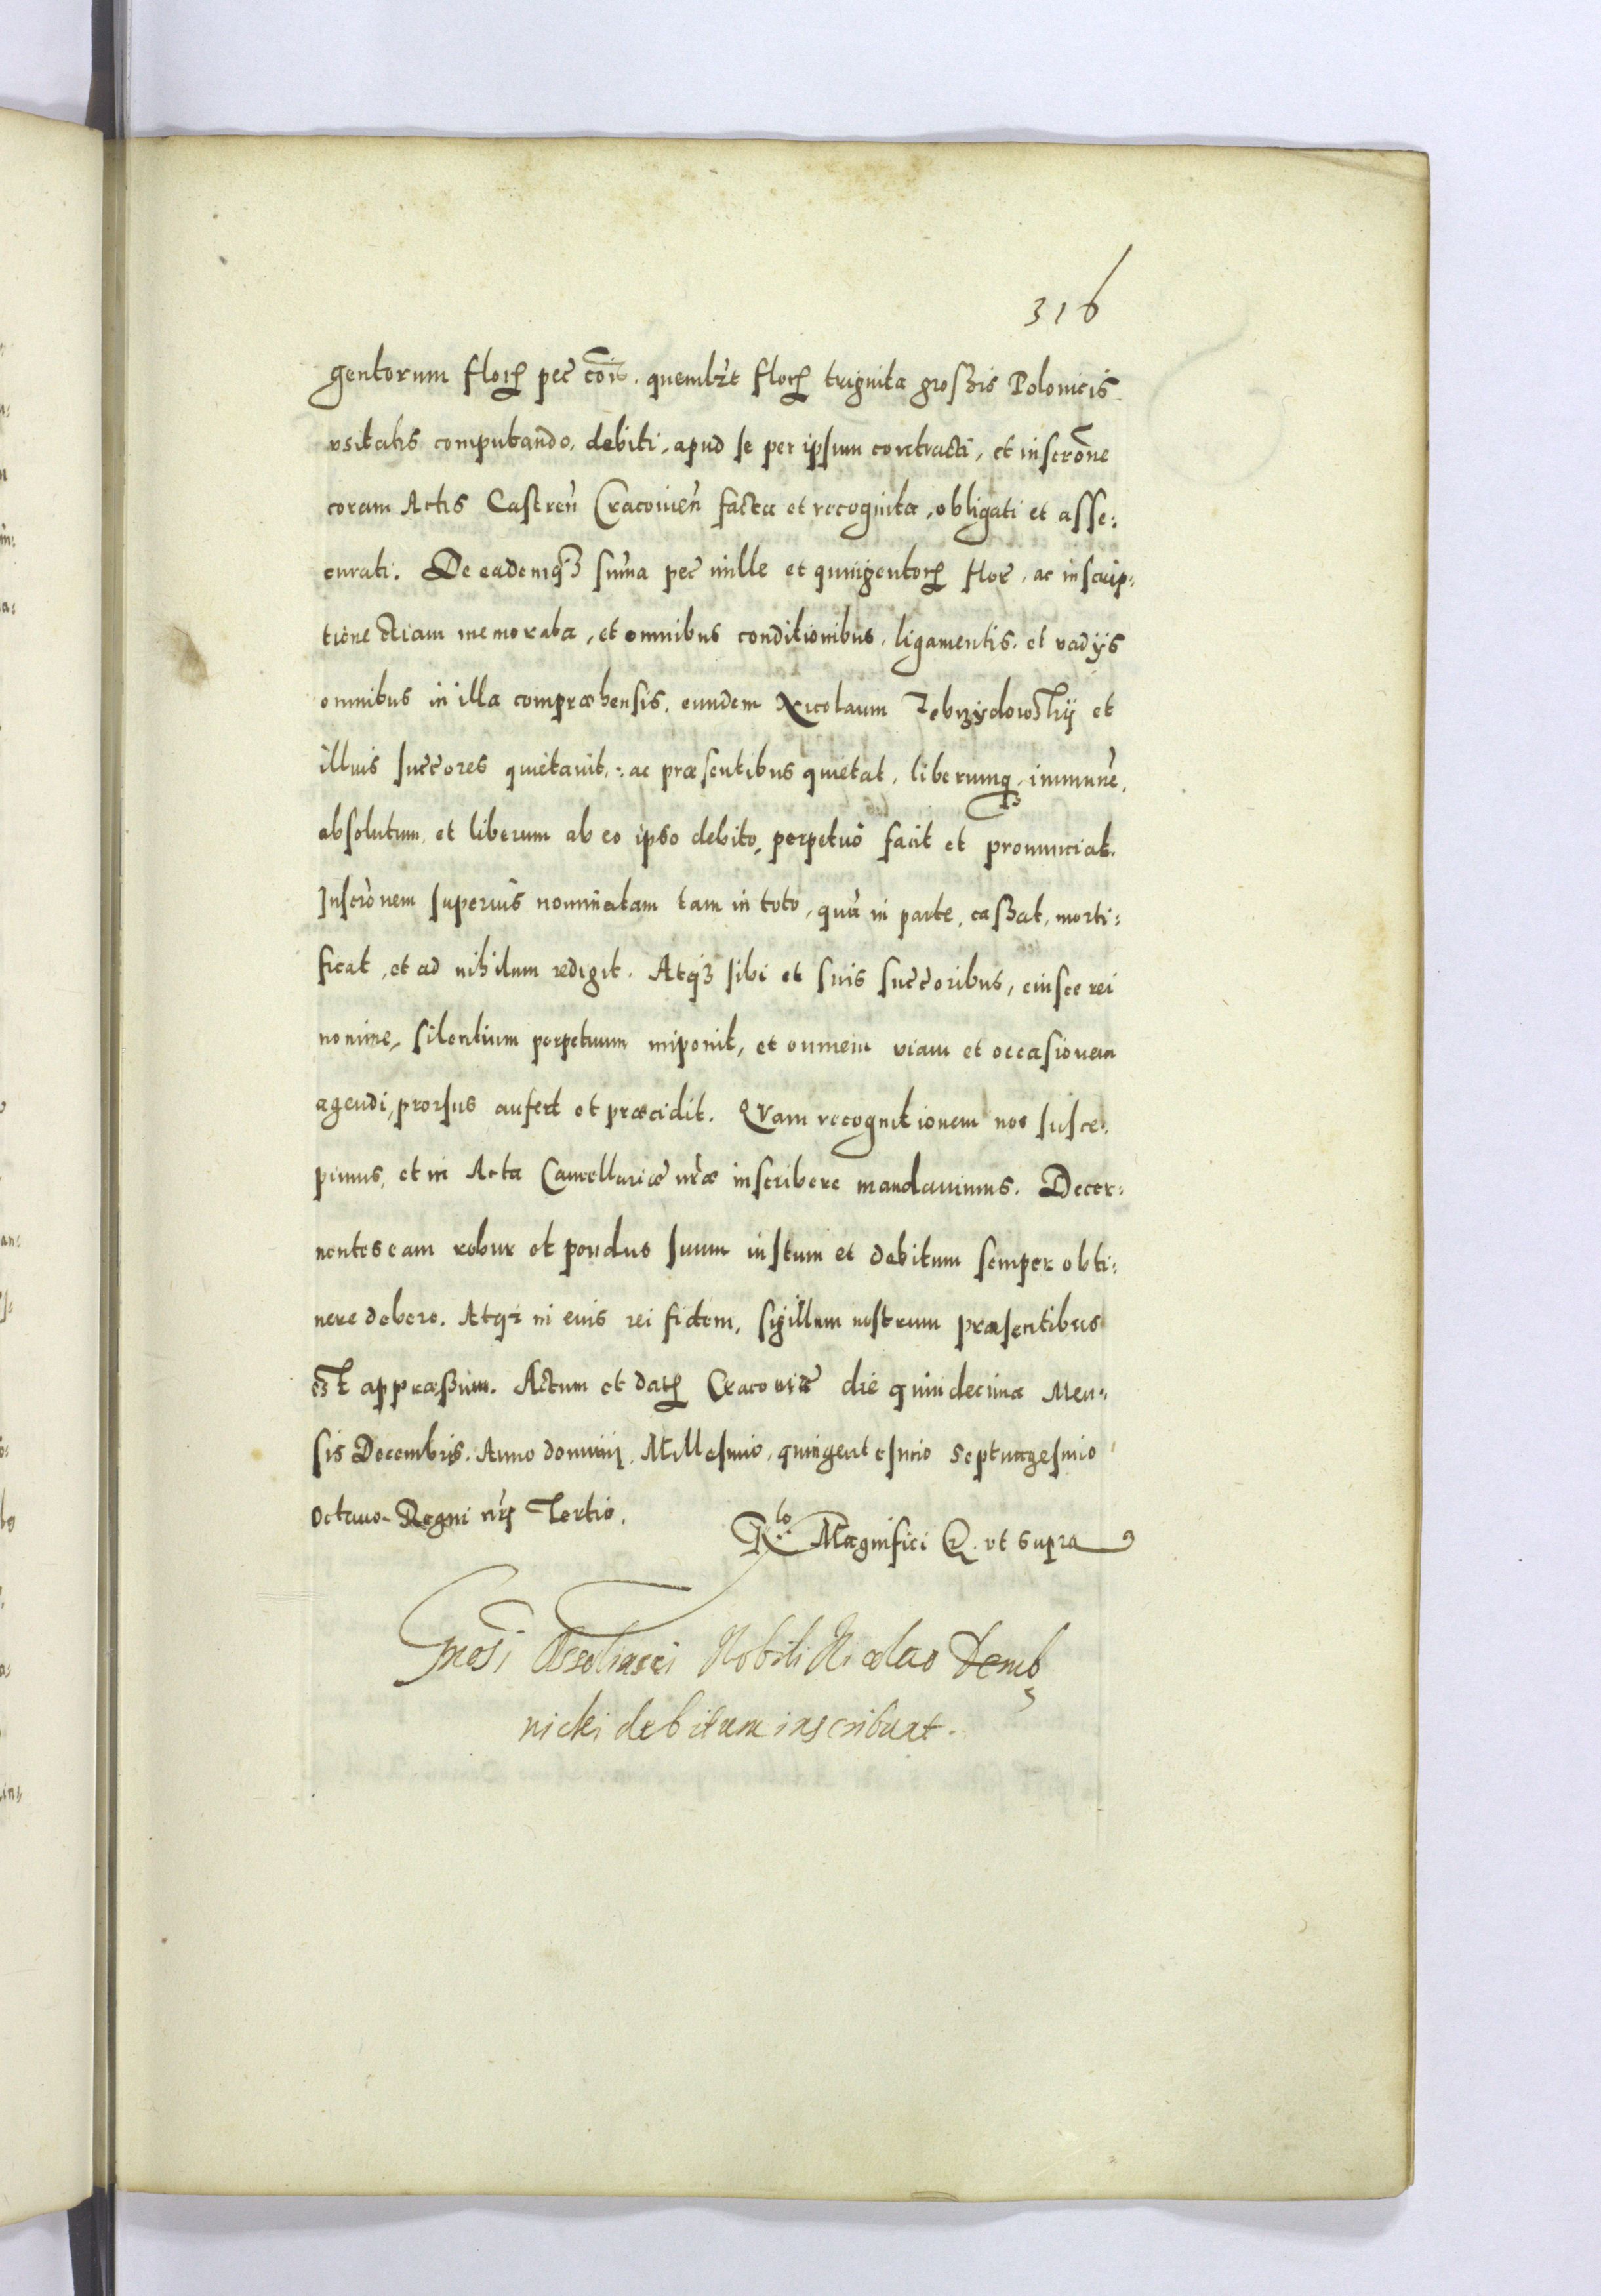 316
gentorum floꝝ pec̃ cõis. quemlꝫt floꝝ triginta großis Polonicis
vsitatis computando, debiti, apud se per ipsum contracti, et inscrõne
coram Actis Castren̄ Cracoüien̄ facta et recognita, obligati et asse:
curati. De eademqꝫ sum̄a pec̃ mille et quingentoꝝ flor̃. ac inscrip:
tione etiam memorata, et omnibus conditionibus, ligamentis. et vadijs
omnibus in illa compræhensis. eundem Nicolaum Zebrzydowskij et
illius succ̃ores quietauit. ac præsentibus quietat, liberumqꝫ, immunē,
absolutum, et liberum ab eo ipso debito, perpetuò facit et pronunciat.
Inscr̃onem superius nominatam tam in toto, quā in parte, caßat, morti:
ficat, et ad nihilum redigit. Atqꝫ sibi et suis succ̃oribus, eiusce rei
nomine, silentium perpetuum imponit, et omnem viam et occasionem
agendi, prorsus aufert et præcidit. Qvam recognitionem nos susce:
pimus, et in Acta Cancellariæ nr̃æ inscribere mandauimus. Decer:
nentes eam robur et pondus suum iustum et debitum semper obti:
nere debere. Atqꝫ in eius rei fidem, sigillum nostrum præsentibus
est appræßum. Actum et datꝝ Cracouiæ die quindecima Men:
sis Decembris. Anno domini, Millesimo, quingentesimo septuagesimo
octauo. Regni nr̃j Tertio.
R.lo Magnifici R. vt supra
Gnosi Ossolinsci Nobili Nicolao Demb
nicki debitum inscribunt.